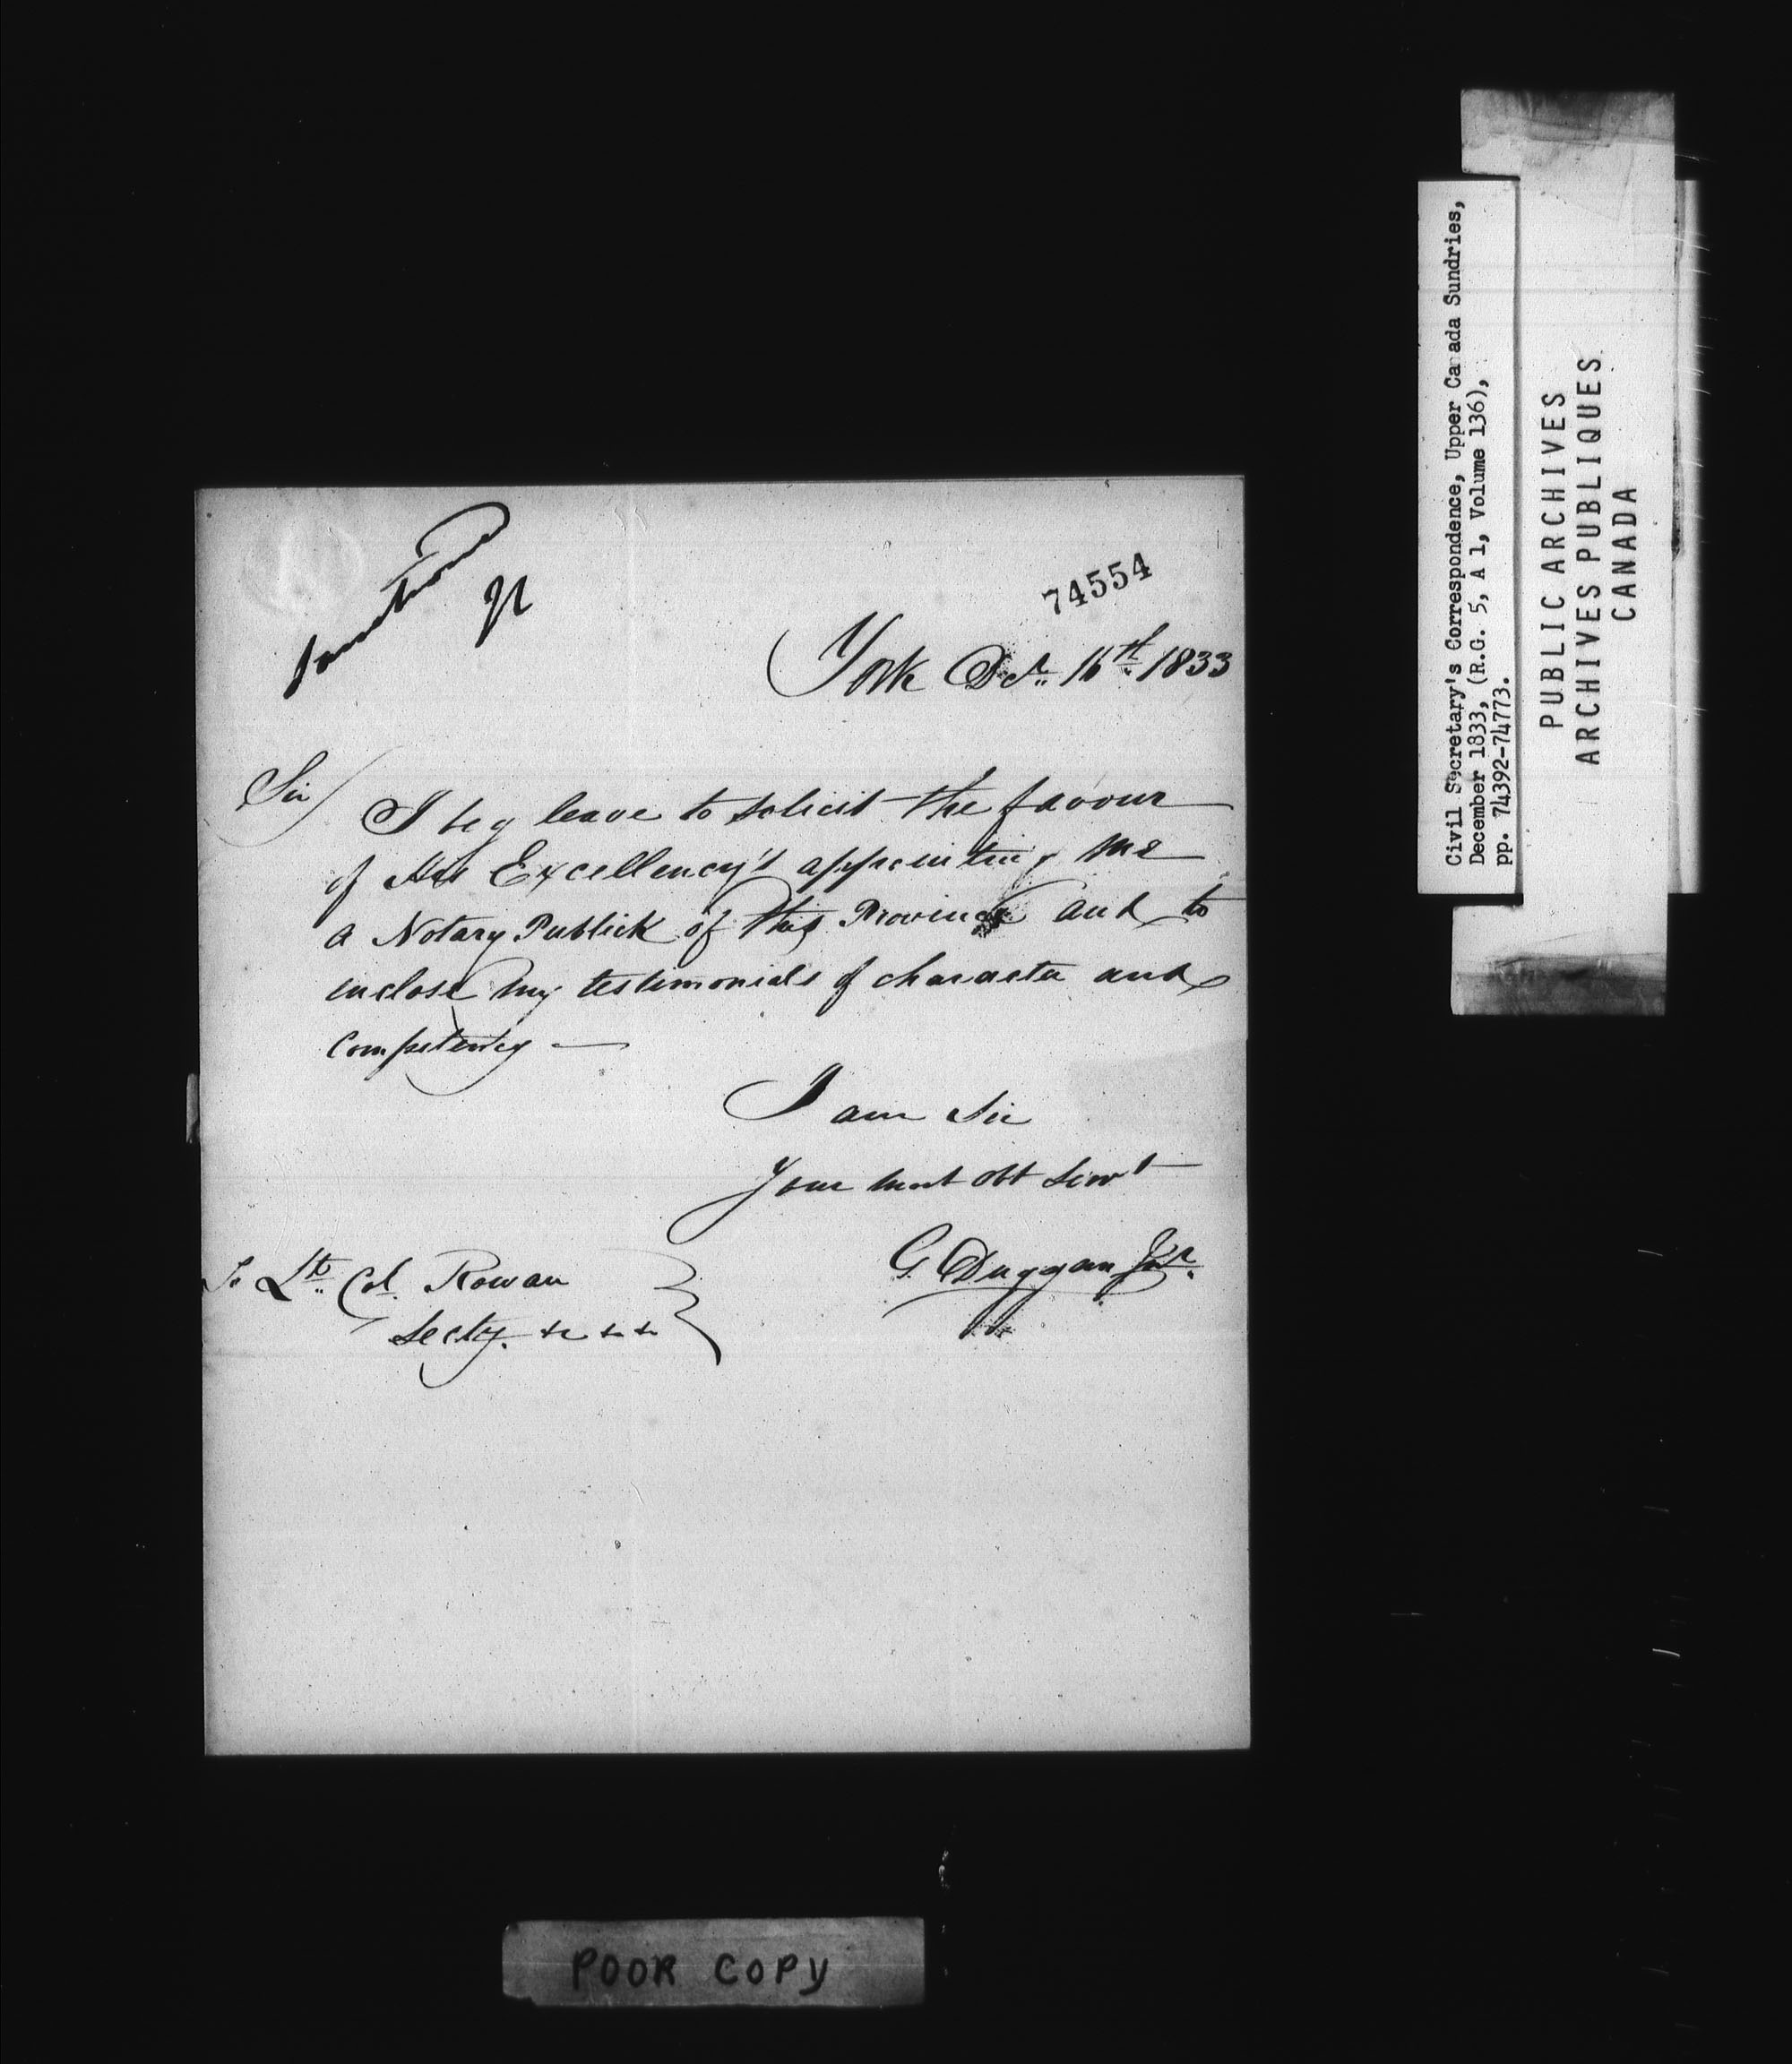 74554
York Decr. 16th 1833
Sir
I beg leave to solicit the favour
of His Excellency's appointing me
a Notary Publick of this Province and to
inclose my testimonials of character and
competency —
I am Sir
Your most obt Servt
G. Duggan Junr.
To Lt. Col. Rowan
Secty. &c &c &c
POOR COPY
Civil Secretary's Correspondence, Upper Canada Sundries,
December 1833, (R.G. 5, A 1, Volume 136),
pp. 74392-74773.
PUBLIC ARCHIVES
ARCHIVES PUBLIQUES
CANADA